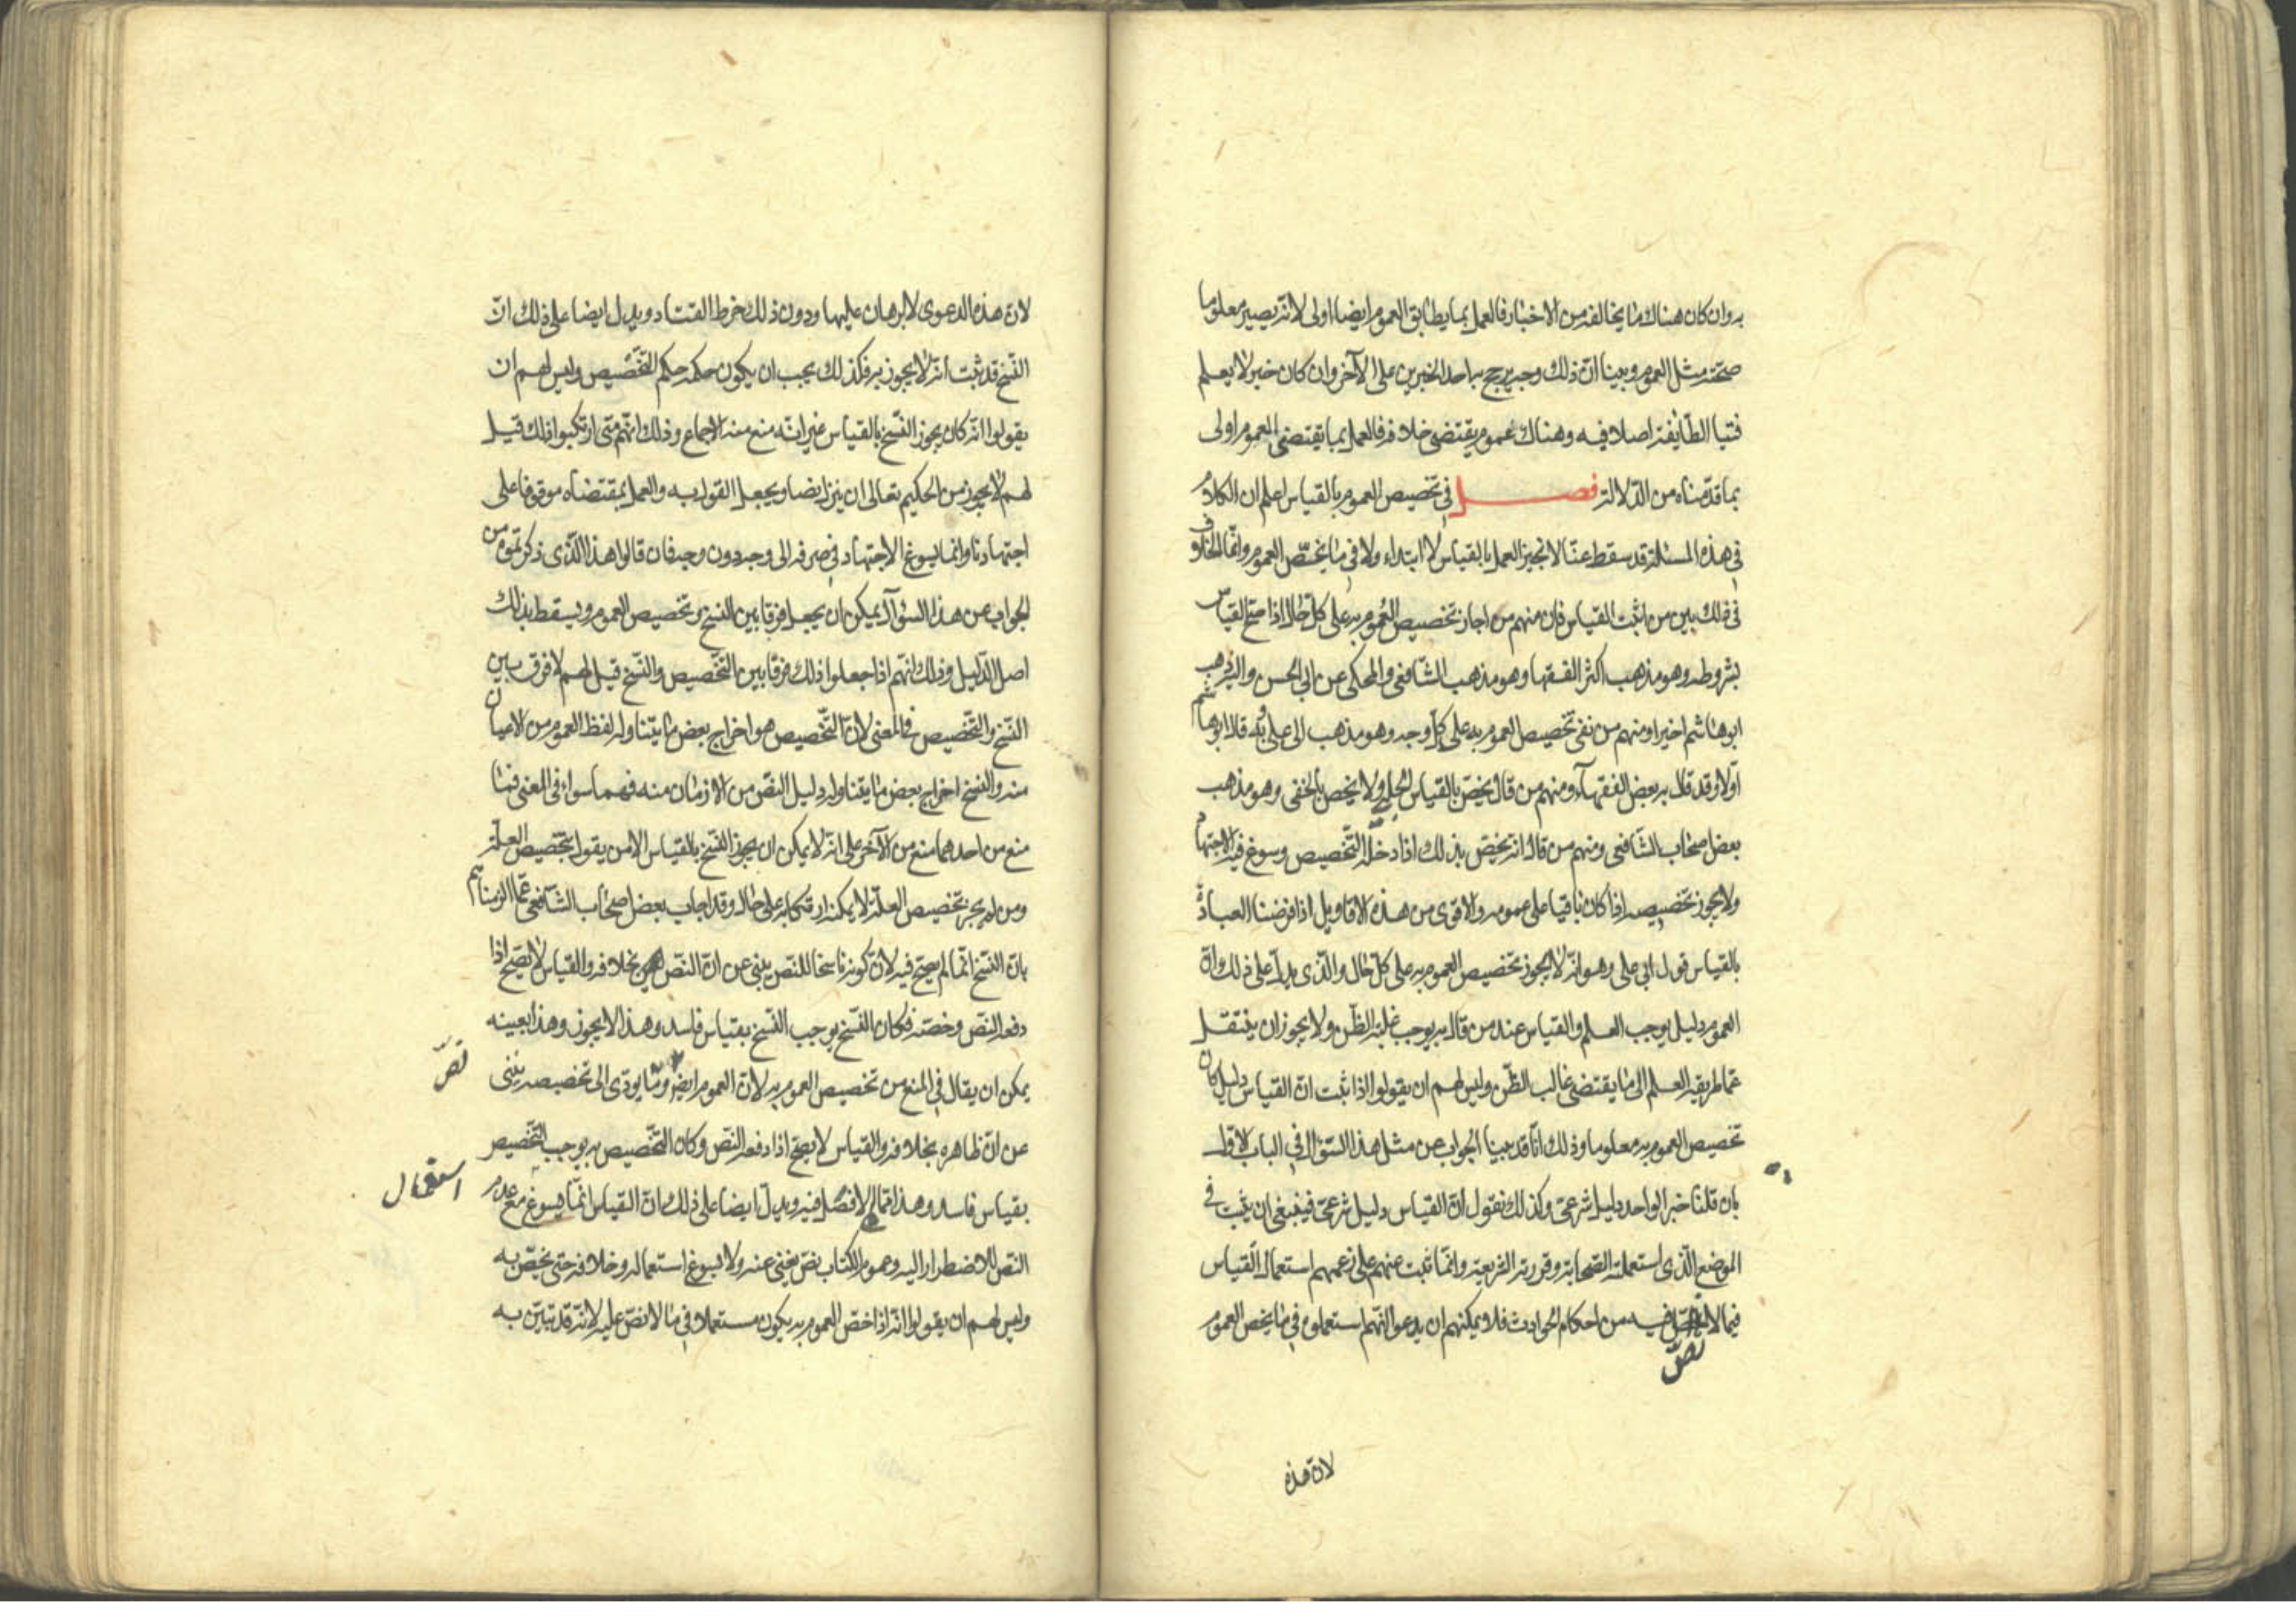 به وان كان هناك ما يخالفه من الاخبار فالعمل بما يطابق العموم ايضا اولى لانه يصير معلوما
صحته مثل العموم وبينا ان ذلك وجه يرجح به احد الخبرين على الآخر وان كان خبر لا يعلم
فتيا الطايفة اصلا فيه وهناك عموم يقتضى خلافه فالعمل بما يقتضى العموم اولى
بما قدمناه من الدلالة فصل في تخصيص العموم بالقياس اعلم ان الكلام
في هذه المسئلة قد سقط عنا لانا لا نجيز العمل بالقياس لا ابتداء ولا فى ما يخص العموم وانما الخلاف
فى ذلك بين من اثبت القياس فان منهم من اجاز تخصيص العموم به على كل حال اذا صح القياس
بشروطه وهو مذهب اكثر الفقها وهو مذهب الشافعى والمحكى عن ابى الحسن واليه ذهب
ابو هاشم اخيرا ومنهم من نفى تخصيص العموم به على كل وجه وهو مذهب ابى على وبه قال ابو هاشم
اولا وقد قال به بعض الفقهآء ومنهم من قال يخص بالقياس الجلى ولا يخص بالخفى وهو مذهب
بعض اصحاب الشافعى ومنهم من قال انه يخص بذلك اذا دخله التخصيص وسوغ فيه الاجتهاد
ولا يجوز تخصيصه اذا كان باقيا على عمومه والاقوى من هذه الاقاويل اذا فرضنا العبادة
بالقياس قول ابى على وهو انه لا يجوز تخصيص العموم به على كل حال والذى يدل على ذلك ان
العموم دليل يوجب العلم والقياس عند من قال به يوجب غلبة الظن ولا يجوز ان ينتقل
عما طريقه العلم الى ما يقتضى غالب الظن وليس لهم ان يقولوا اذا ثبت ان القياس دليل كان
تخصيص العموم به معلوما وذلك انا قد بينا الجواب عن مثل هذا السؤال فى الباب الاول
بان قلنا خبر الواحد دليل شرعى وكذلك نقول ان القياس دليل شرعى فينبغى ان يثبت فى
الموضع الذى استعملته الصحابة وقررته الشريعة وانما ثبت عنهم على زعمهم استعمال القياس
فيما لا نص فيه من احكام الحوادث فلا يمكنهم ان يدعوا انهم استعملوه فى ما يخص العموم
نص
لان هذه
لان هذه الدعوى لا برهان عليها ودون ذلك خرط القتاد ويدل ايضا على ذلك ان
النسخ قد ثبت انه لا يجوز به فكذلك يجب ان يكون حكمه حكم التخصيص وليس لهم ان
يقولوا انه كان يجوز النسخ بالقياس غير انه منع منه الاجماع وذلك انهم متى ارتكبوا ذلك قيل
لهم لا يجوز من الحكيم تعالى ان ينزل نصا ويجعل القول به والعمل بمقتضاه موقوفا على
اجتهادنا وانما يسوغ الاجتهاد فى صرفه الى وجه دون وجه فان قالوا هذا الذى ذكرتموه من
الجواب عن هذا السؤال يمكن ان يجعل فرقا بين النسخ وتخصيص العموم ويسقط بذلك
اصل الدليل وذلك انهم اذا جعلوا ذلك فرقا بين التخصيص والنسخ قيل لهم لا فرق بين
النسخ والتخصيص فى المعنى لان التخصيص هو اخراج بعض ما يتناوله لفظ العموم من الاعيان
منه والنسخ اخراج بعض ما يتناوله دليل النص من الازمان منه فهما سواء فى المعنى فما
منع من احدهما منع من الآخر على انه لا يمكن ان يجوز النسخ بالقياس الا من يقول بتخصيص العلة
ومن لم يجز تخصيص العلة لا يمكنه ارتكابه على حال وقد اجاب بعض اصحاب الشافعى عما الزمناهم
بان النسخ انما لم يصح فيه لان كونه ناسخا للنص ينبى عن ان النص بخلافه والقياس لا يصح اذا
دفعه النص وخصته فكان النسخ يوجب النسخ بقياس فاسد وهذا لا يجوز وهذا بعينه
يمكن ان يقال فى المنع من تخصيص العموم به لان العموم ايضا وما يودى الى تخصيصه ينبى
نص
عن ان ظاهره بخلافه والقياس لا يصح اذا دفعه النص وكان التخصيص به يوجب التخصيص
بقياس فاسد وهذا مما لا فصل فيه ويدل ايضا على ذلك ان القياس انما يسوغ مع عدم
استعمال
النص للاضطرار اليه وعموم الكتاب نص يغنى عنه ولا يسوغ استعماله وخلافه حتى يخص به
وليس لهم ان يقولوا انه اذا خص العموم به يكون مستعملا فى ما لا نص عليه لانه قد تبين به